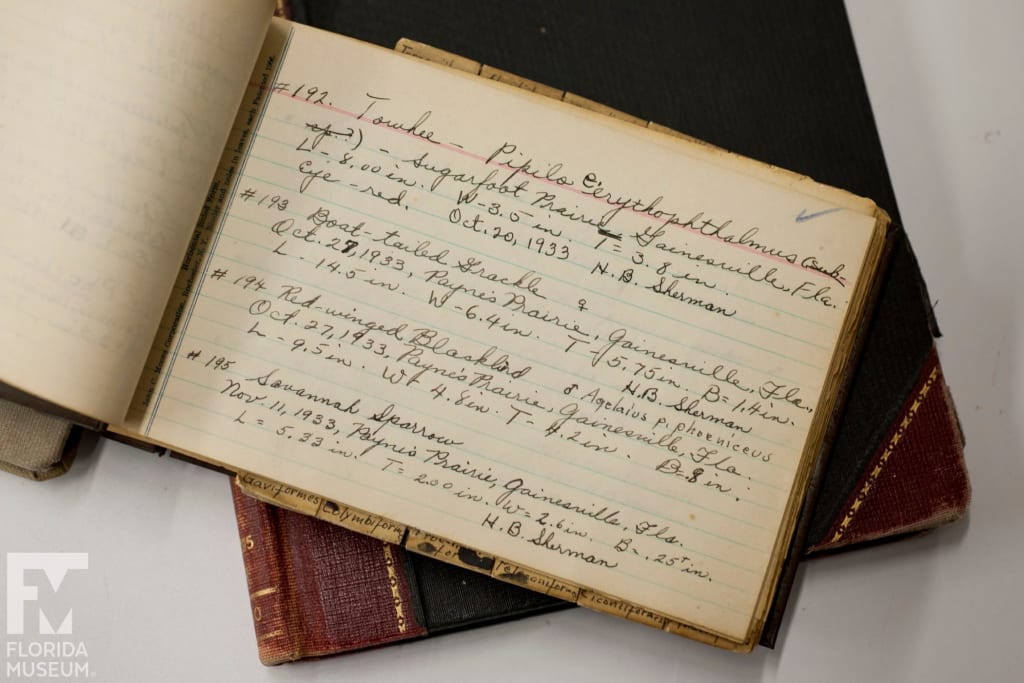 #192. Towhee - Pipilo e. erythophthalmus (sub-
sp.?) - Sugarfoot Prairie, Gainesville, Fla.
L - 8.00 in. W - 3.5 in. T = 3.8 in.
Eye - red. Oct. 20, 1933 H. B. Sherman
#193 Boat-tailed Grackle ♀
Oct. 27, 1933, Payne's Prairie, Gainesville, Fla.,
L - 14.5 in. W - 6.4 in. T - 5.75 in. B = 1.4 in.
H.B. Sherman
#194 Red-winged Blackbird ♂ Agelaius p. phoeniceus
Oct. 27, 1933, Payne's Prairie, Gainesville, Fla.
L - 9.5 in. W - 4.8 in. T - 4.2 in. B = .8 in.
#195 Savannah Sparrow
Nov. 11, 1933, Payne's Prairie, Gainesville, Fla.
L = 5.33 in. T = 2.00 in. W = 2.6 in. B = .25+ in.
H. B. Sherman
Gaviiformes
Colymbiform
Ciconiiformes
FM
FLORIDA
MUSEUM